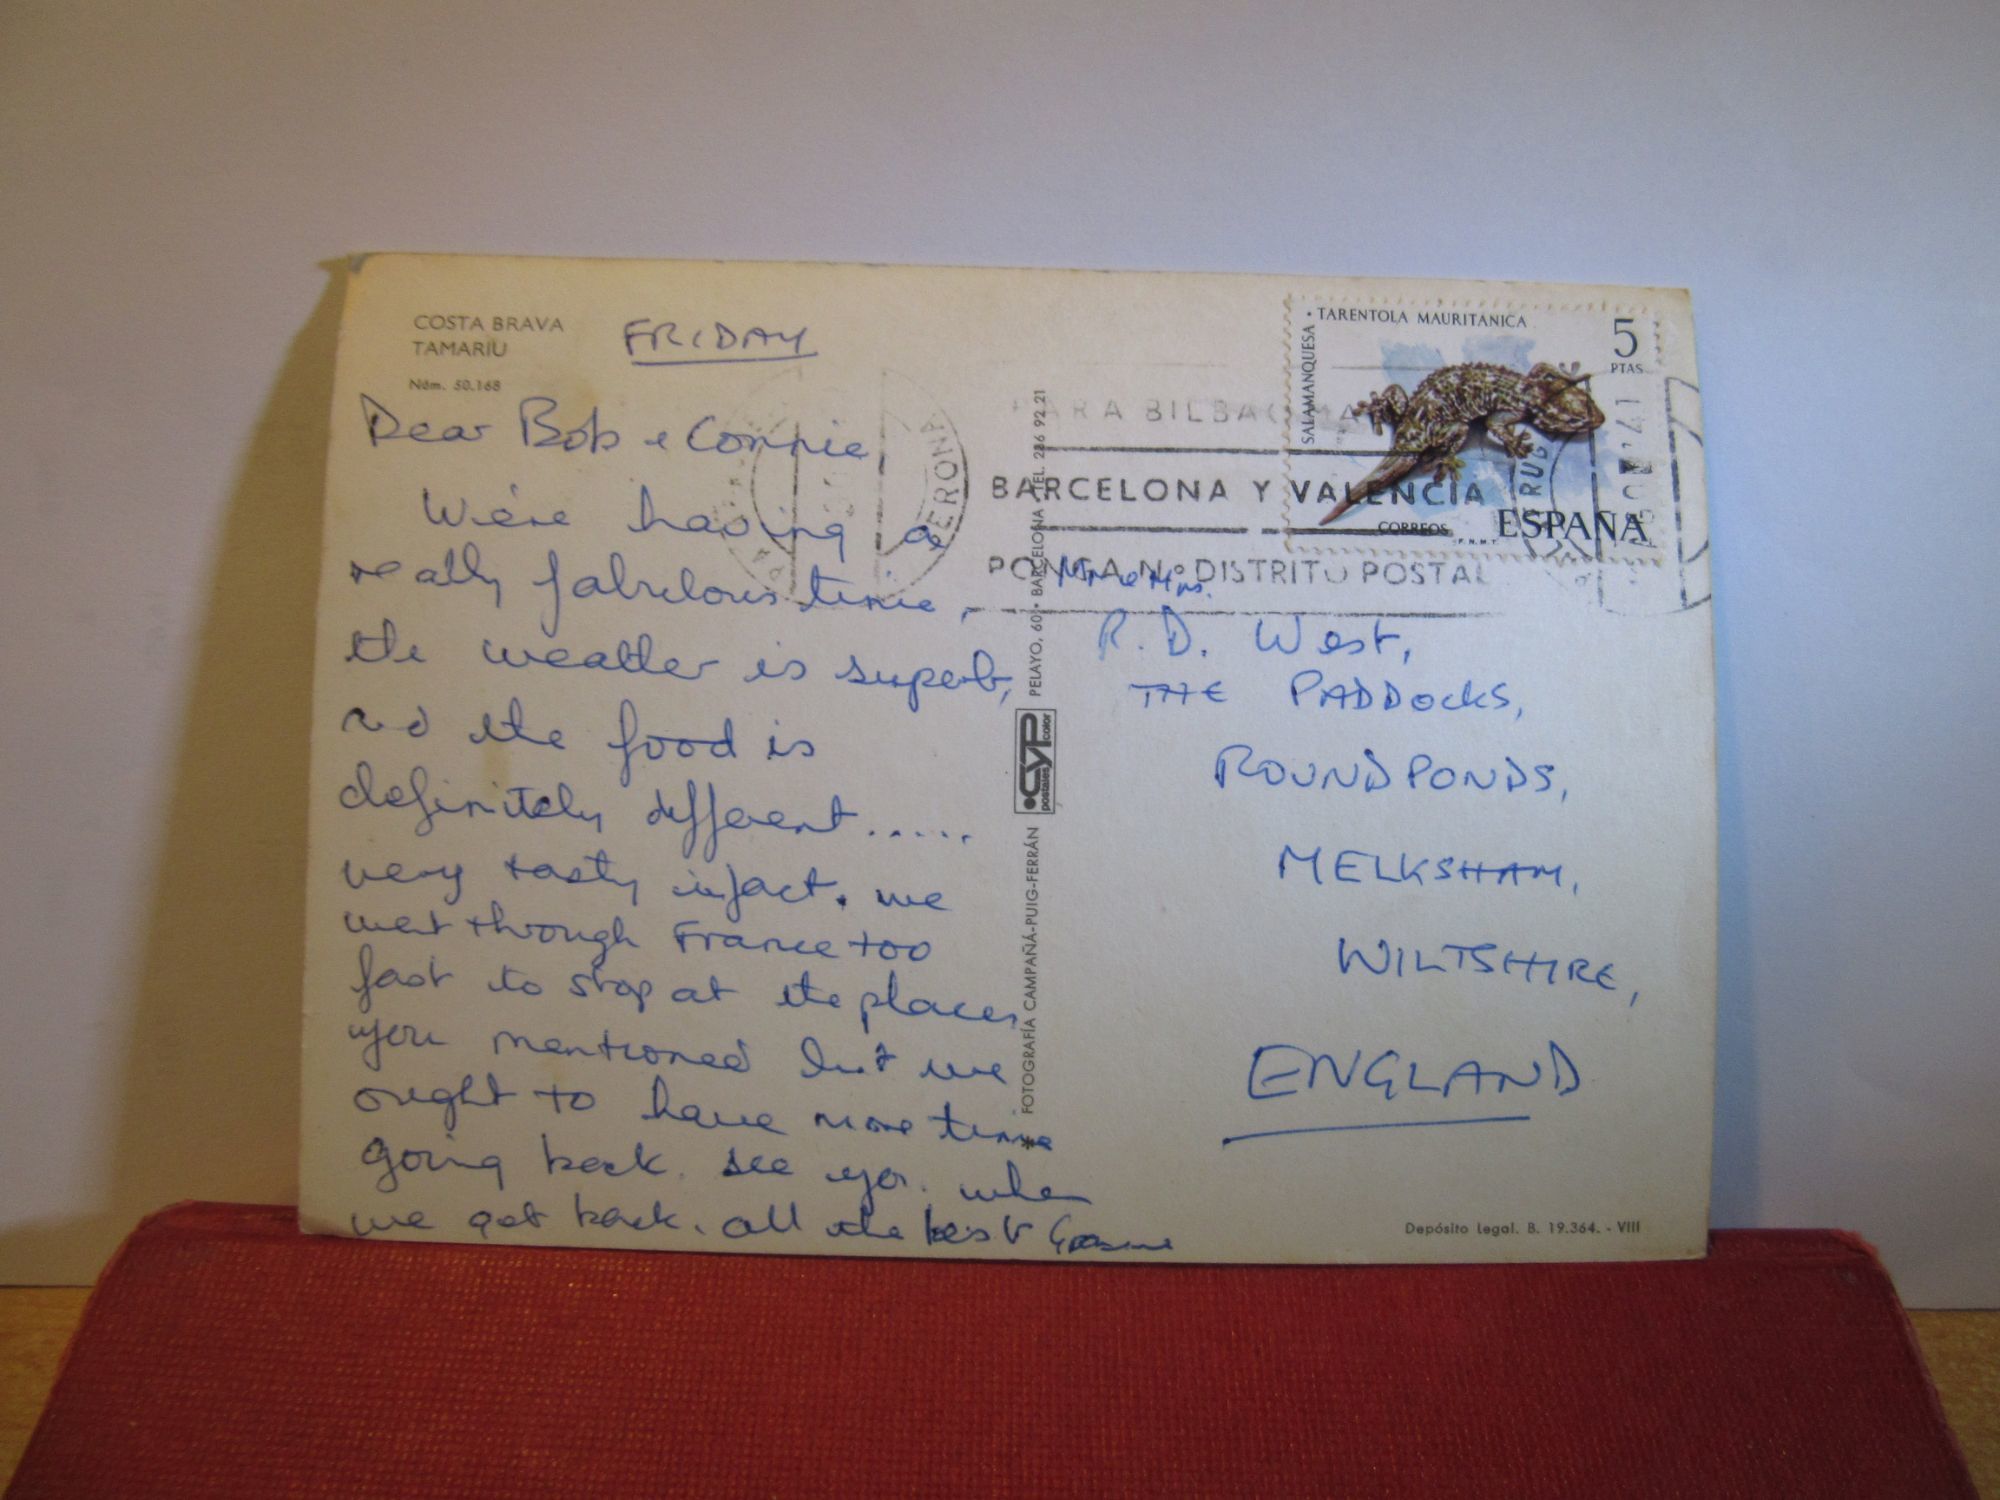 COSTA BRAVA
TAMARIU
Núm. 50.168
FRIDAY
Dear Bob & Connie
We're having a
really fabulous time,
the weather is superb,
and the food is
definitely different......
very tasty infact. we
went through France too
fast to stop at the places
you mentioned but we
ought to have more time
going back. see you when
we get back. all the best
FOTOGRAFÍA CAMPAÑÁ-PUIG-FERRÁN
postales CYP color
PELAYO, 60 • BARCELONA TEL. 236 92 21
SALAMANQUESA • TARENTOLA MAURITANICA
5
PTAS
CORREOS F.N.M.T. ESPAÑA
GERONA
PARA BILBAO MA
BARCELONA Y VALENCIA
PONGA Nº DISTRITO POSTAL
Mr & Mrs.
R. D. West,
THE PADDOCKS,
ROUNDPONDS,
MELKSHAM,
WILTSHIRE,
ENGLAND
Depósito Legal. B. 19.364. - VIII